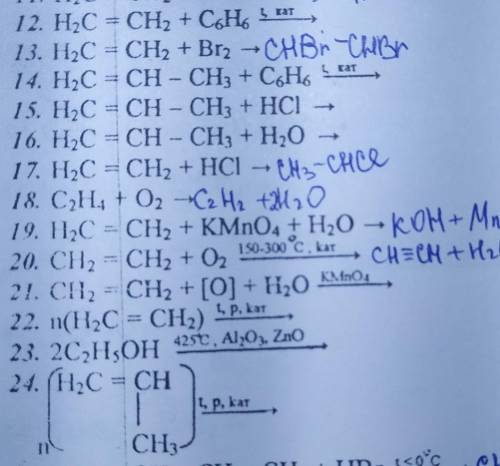 12. H₂C = CH₂ + C₆H₆ t, кат →
13. H₂C = CH₂ + Br₂ → CHBr – CHBr
14. H₂C = CH – CH₃ + C₆H₆ t, кат →
15. H₂C = CH – CH₃ + HCl →
16. H₂C = CH – CH₃ + H₂O →
17. H₂C = CH₂ + HCl → CH₃ – CHCl
18. C₂H₄ + O₂ → C₂H₂ + 2H₂O
19. H₂C = CH₂ + KMnO₄ + H₂O → KOH + Mn
20. CH₂ = CH₂ + O₂ 150-300°C, кат → CH≡CH + H₂
21. CH₂ = CH₂ + [O] + H₂O KMnO₄ →
22. n(H₂C = CH₂) t, p, кат →
23. 2C₂H₅OH 425°C, Al₂O₃, ZnO →
24. H₂C = CH
t, p, кат →
n CH₃